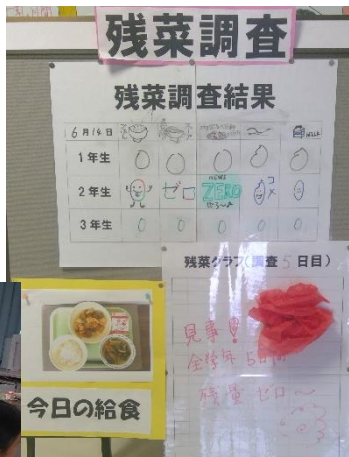 残菜調査
残菜調査結果
6月14日
1年生 0 0 0 0 0
2年生 0 ゼロ ZERO 0 コメ 0
3年生 0 0 0 0 0
残菜グラフ(調査5日目)
見事!
全学年 5日間
残量 ゼロ〜
今日の給食